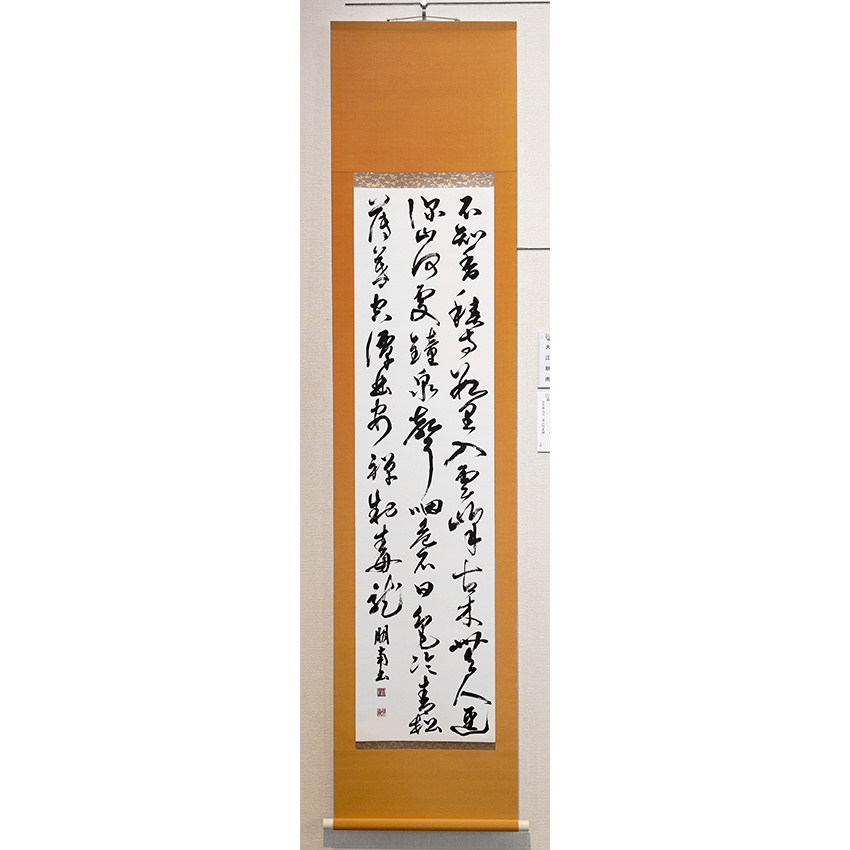 不知香積寺数里入雲峰古木無人逕
深山何処鐘泉聲咽危石日色冷青松
薄暮空潭曲安禅制毒龍 朋南書
大江朋南